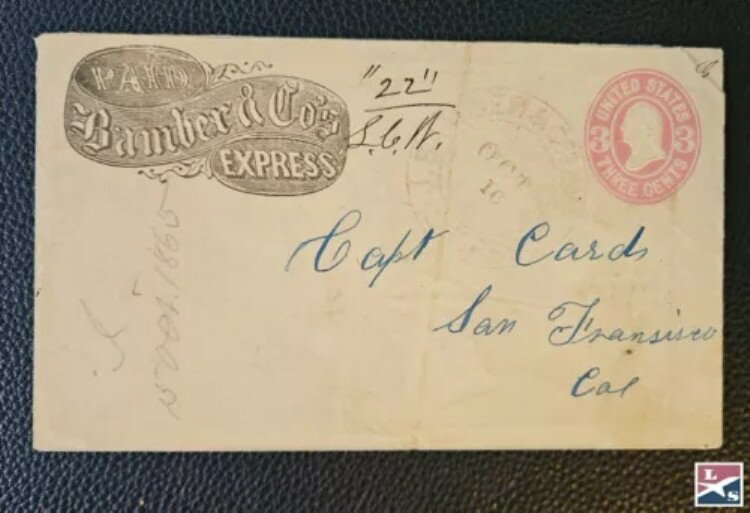 PAID
Bamber & Co's
EXPRESS
"22"
OCT
16
UNITED STATES
3 3
THREE CENTS
Capt Card
San Fransisco
Cal
Oct. 1865
L S